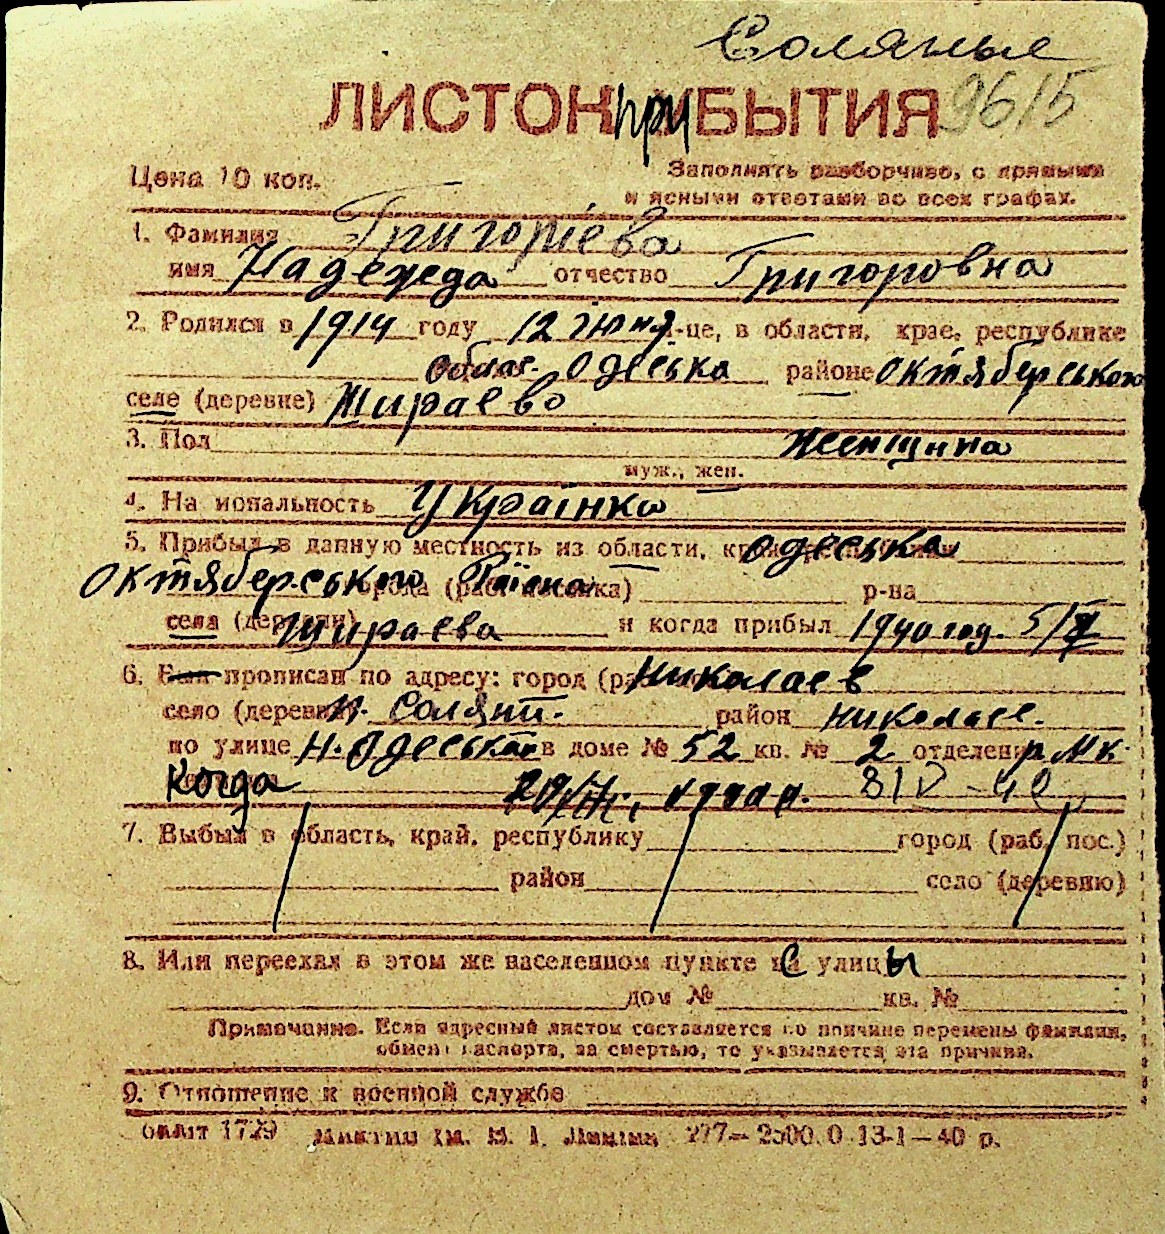 Соляные
ЛИСТОК ПРИБЫТИЯ 9615
Цена 10 коп.
Заполнять разборчиво, с прямыми
и ясными ответами во всех графах.
1. Фамилия Григоріева
имя Надежда отчество Григоровна
2. Родился в 1914 году 12 июня-це, в области, крае, республике
облас. Одеська районе Октяберського
селе (деревне) Шираево
3. Пол женщина
муж., жен.
4. Национальность Українка
5. Прибыл в данную местность из области, Одеська
Октяберського Раіона р-на
села Шираева и когда прибыл 1940 год.
6. Был прописан по адресу: город Николаев
село Н. Солян. район Николаев.
по улице Н. Одеська в доме № 52 кв. № 2 отделен
Когда
7. Выбыл в область, край, республику город (раб. пос.)
район село (деревню)
8. Или переехал в этом же населенном пункте с улицы
дом № кв. №
Примечание. Если адресный листок составляется по причине перемены фамилии,
обмена паспорта, за смертью, то указывается эта причина.
9. Отношение к военной службе
Облліт 1729 ім. В. І. Леніна 277—2500.0 13-1—40 р.